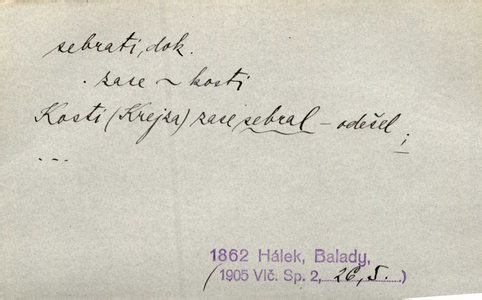 sebrati, dok.
. zase ~ kosti
Kosti (Krejza) zase sebral – odešel;
...
1862 Hálek, Balady,
(1905 Vlč. Sp. 2, 26, 5.)